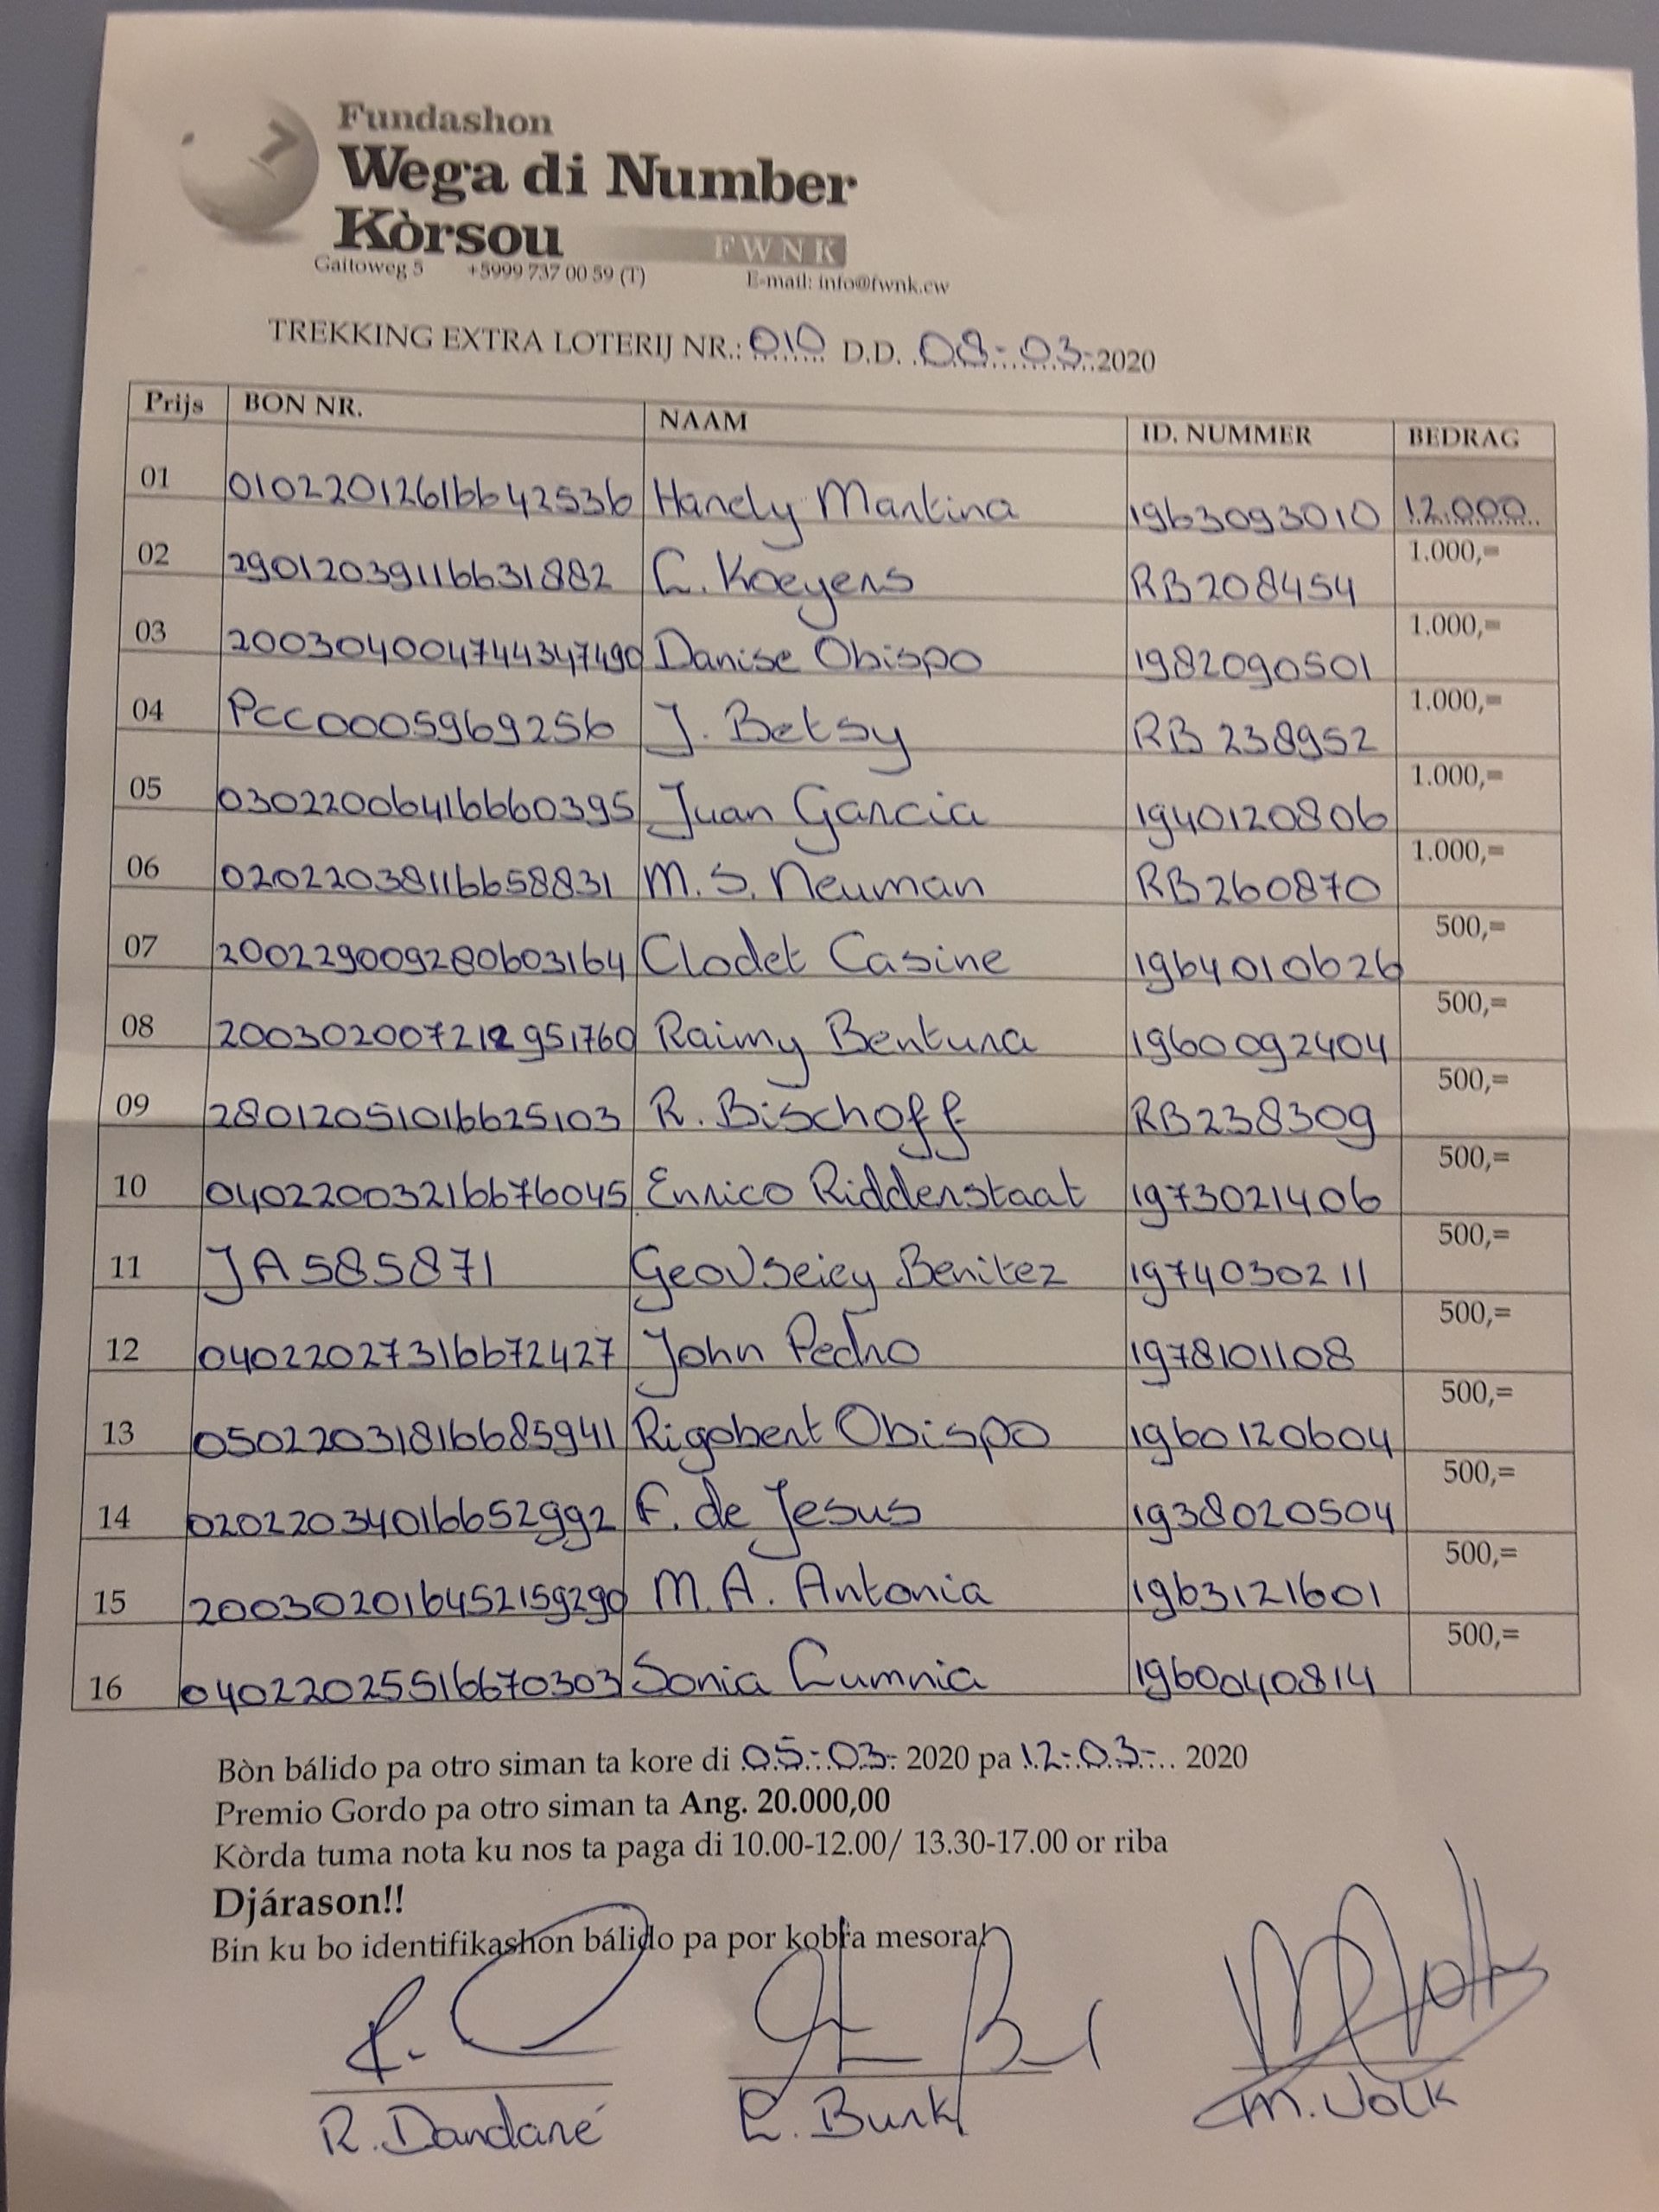 7
Fundashon
Wega di Number
Kòrsou FWNK
Gaitoweg 5 +5999 737 00 59 (T) E-mail: info@fwnk.cw
TREKKING EXTRA LOTERIJ NR.: 010 D.D. 08-03-2020
Prijs BON NR. NAAM ID. NUMMER BEDRAG
01 01022012616642536 Handy Martina 1963093010 12.000
02 290120391166631882 C. Koeyers RB208454 1.000,=
03 200304004744347490 Danise Obispo 1982090501 1.000,=
04 PCC0005969256 J. Betsy RB 238952 1.000,=
05 030220064166660395 Juan Garcia 1940120806 1.000,=
06 02022038116658831 M.S. Neuman RB260870 1.000,=
07 200229009280603164 Clodet Casine 1964010626 500,=
08 200302007212951760 Raimy Bentura 1960092404 500,=
09 280120510166625103 R. Bischoff RB238309 500,=
10 040220032166676045 Enrico Riddenstaat 1973021406 500,=
11 JA585871 Benitez 1974030211 500,=
12 040220273166672427 John Pedro 1978101108 500,=
13 050220318166685941 Rigobert Obispo 1960120604 500,=
14 020220340166652992 F. de Jesus 1938020504 500,=
15 200302016452159290 M.A. Antonia 1963121601 500,=
16 040220255166670303 Sonia 1960040814 500,=
Bòn bálido pa otro siman ta kore di 05-03- 2020 pa 12-03- 2020
Premio Gordo pa otro siman ta Ang. 20.000,00
Kòrda tuma nota ku nos ta paga di 10.00-12.00/ 13.30-17.00 or riba
Djárason!!
Bin ku bo identifikashon bálido pa por kobra mesora!
R. Dandaré M. Volk